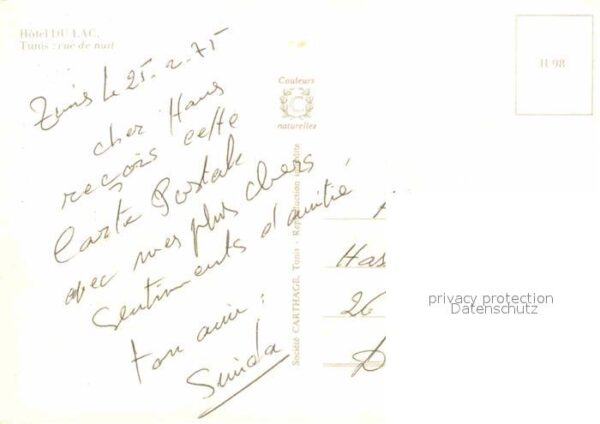 Hôtel DU LAC,
Tunis : rue de nuit
Tunis le 25.2.75
cher Hans
reçois cette
Carte Postale
avec mes plus chers
sentiments d'amitié
ton amie :
Couleurs
C
naturelles
Société CARTHAGE, Tunis - Reproduction interdite
H 98
Has
26
D
privacy protection
Datenschutz